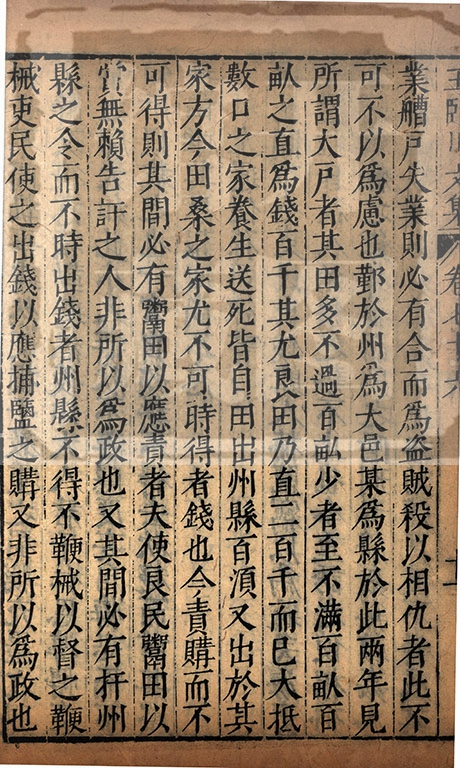 王臨川文集 卷七十六 十一
業艚戸失業則必有合而爲盗賊殺以相仇者此不
可不以爲慮也鄞於州爲大邑某爲縣於此兩年見
所謂大戸者其田多不過百畝少者至不滿百畝百
畝之直爲錢百千其尤良田乃直二百千而已大抵
數口之家養生送死皆自田出州縣百湏又出於其
家方今田桑之家尤不可時得者錢也今責購而不
可得則其間必有鬻田以應責者夫使良民鬻田以
賞無賴告訐之人非所以爲政也又其間必有扞州
縣之令而不時出錢者州縣不得不鞭械以督之鞭
械吏民使之出錢以應捕鹽之購又非所以爲政也